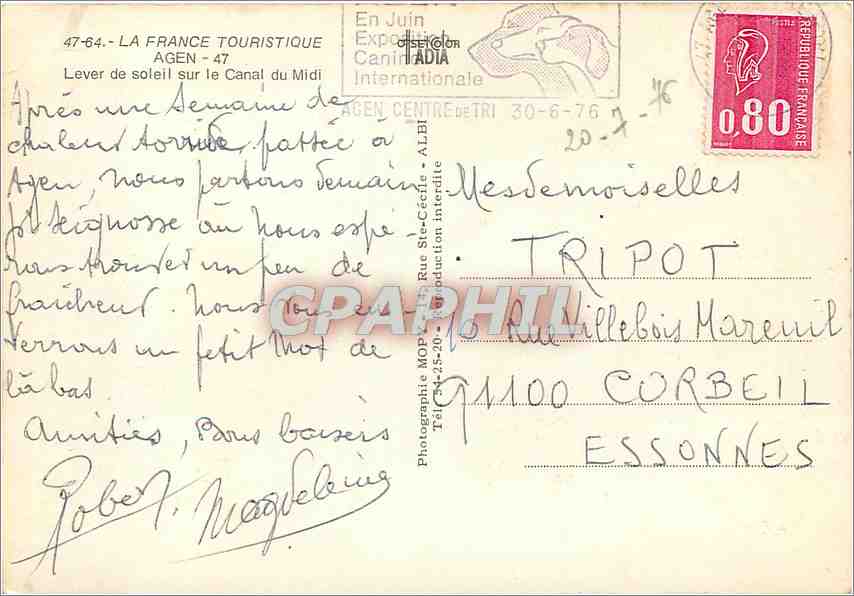 47-64.- LA FRANCE TOURISTIQUE
AGEN - 47
Lever de soleil sur le Canal du Midi
En Juin
Exposition
Canine
Internationale
AGEN CENTRE DE TRI 30-6-76
OFFSET COLOR
ADIA
POSTES
REPUBLIQUE FRANÇAISE
0,80
20-7-76
Après une semaine de
chaleur torride, passée à
Agen, nous partons demain
pr Seignosse où nous espé-
rons trouver un peu de
fraîcheur. Nous vous en-
verrons un petit mot de
là bas.
Amitiés, Bons baisers
Robert. Magdeleine
Photographie MOPY - 14, Rue Ste-Cécile - ALBI
Tél. 54-25-20 - Reproduction interdite
Mesdemoiselles
TRIPOT
10 Rue Villebois Mareuil
91100 CORBEIL
ESSONNES
CPAPHIL